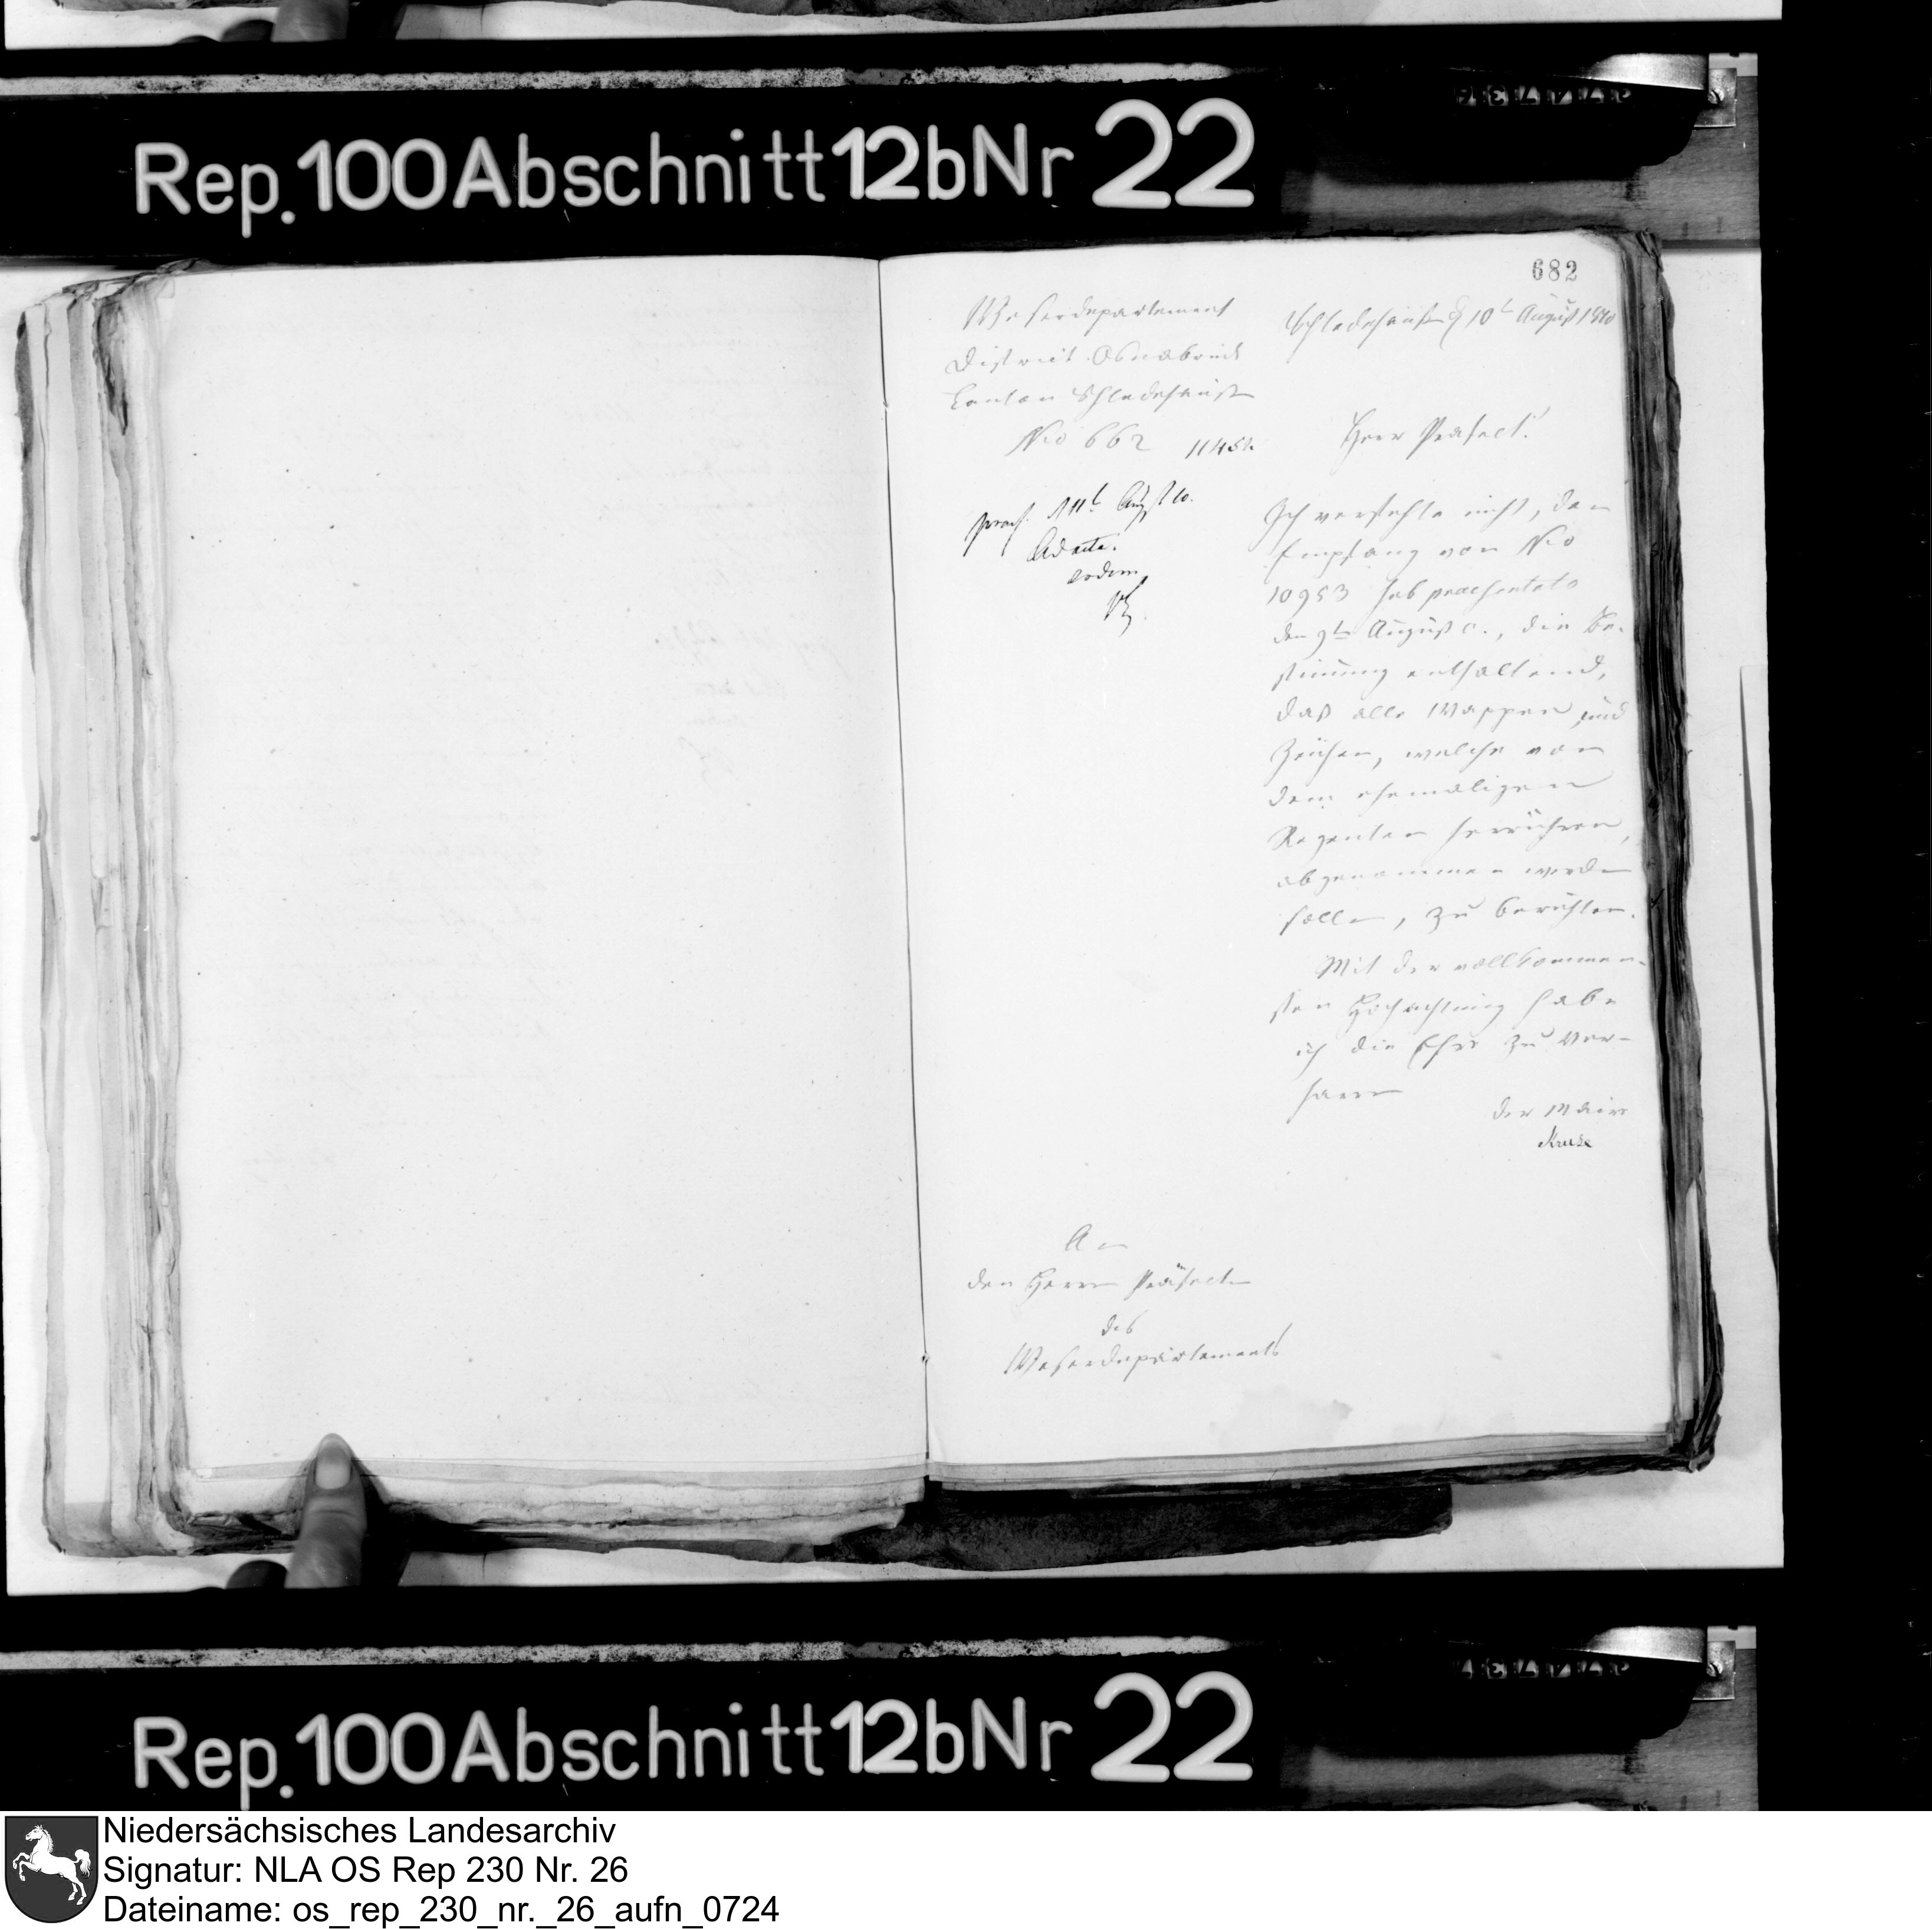 Rep. 100 Abschnitt 12b Nr 22
682
Weserdepartement
District Osnabrück
Canton Schledehausen
Nro 662
Schledehausen d 10t August 1810
Herr Präfect!
praes. d 11t August 10.
Ad acta.
eodem
Ich verfehle nicht, den
Empfang von Nro
10953 sub praesentato
den 9ten August c., die Be-
stimung enthaltend,
daß alle Wappen und
Zeichen, welche von
dem ehemaligen
Regenten herrühren,
abgenommen werden
sollen, zu berichten.
Mit der vollkommen-
sten Hochachtung habe
ich die Ehre zu ver-
harren
der Maire
Kruse
An
den Herrn Präfecten
des
Weserdepartements
Rep. 100 Abschnitt 12b Nr 22
Niedersächsisches Landesarchiv
Signatur: NLA OS Rep 230 Nr. 26
Dateiname: os_rep_230_nr._26_aufn_0724